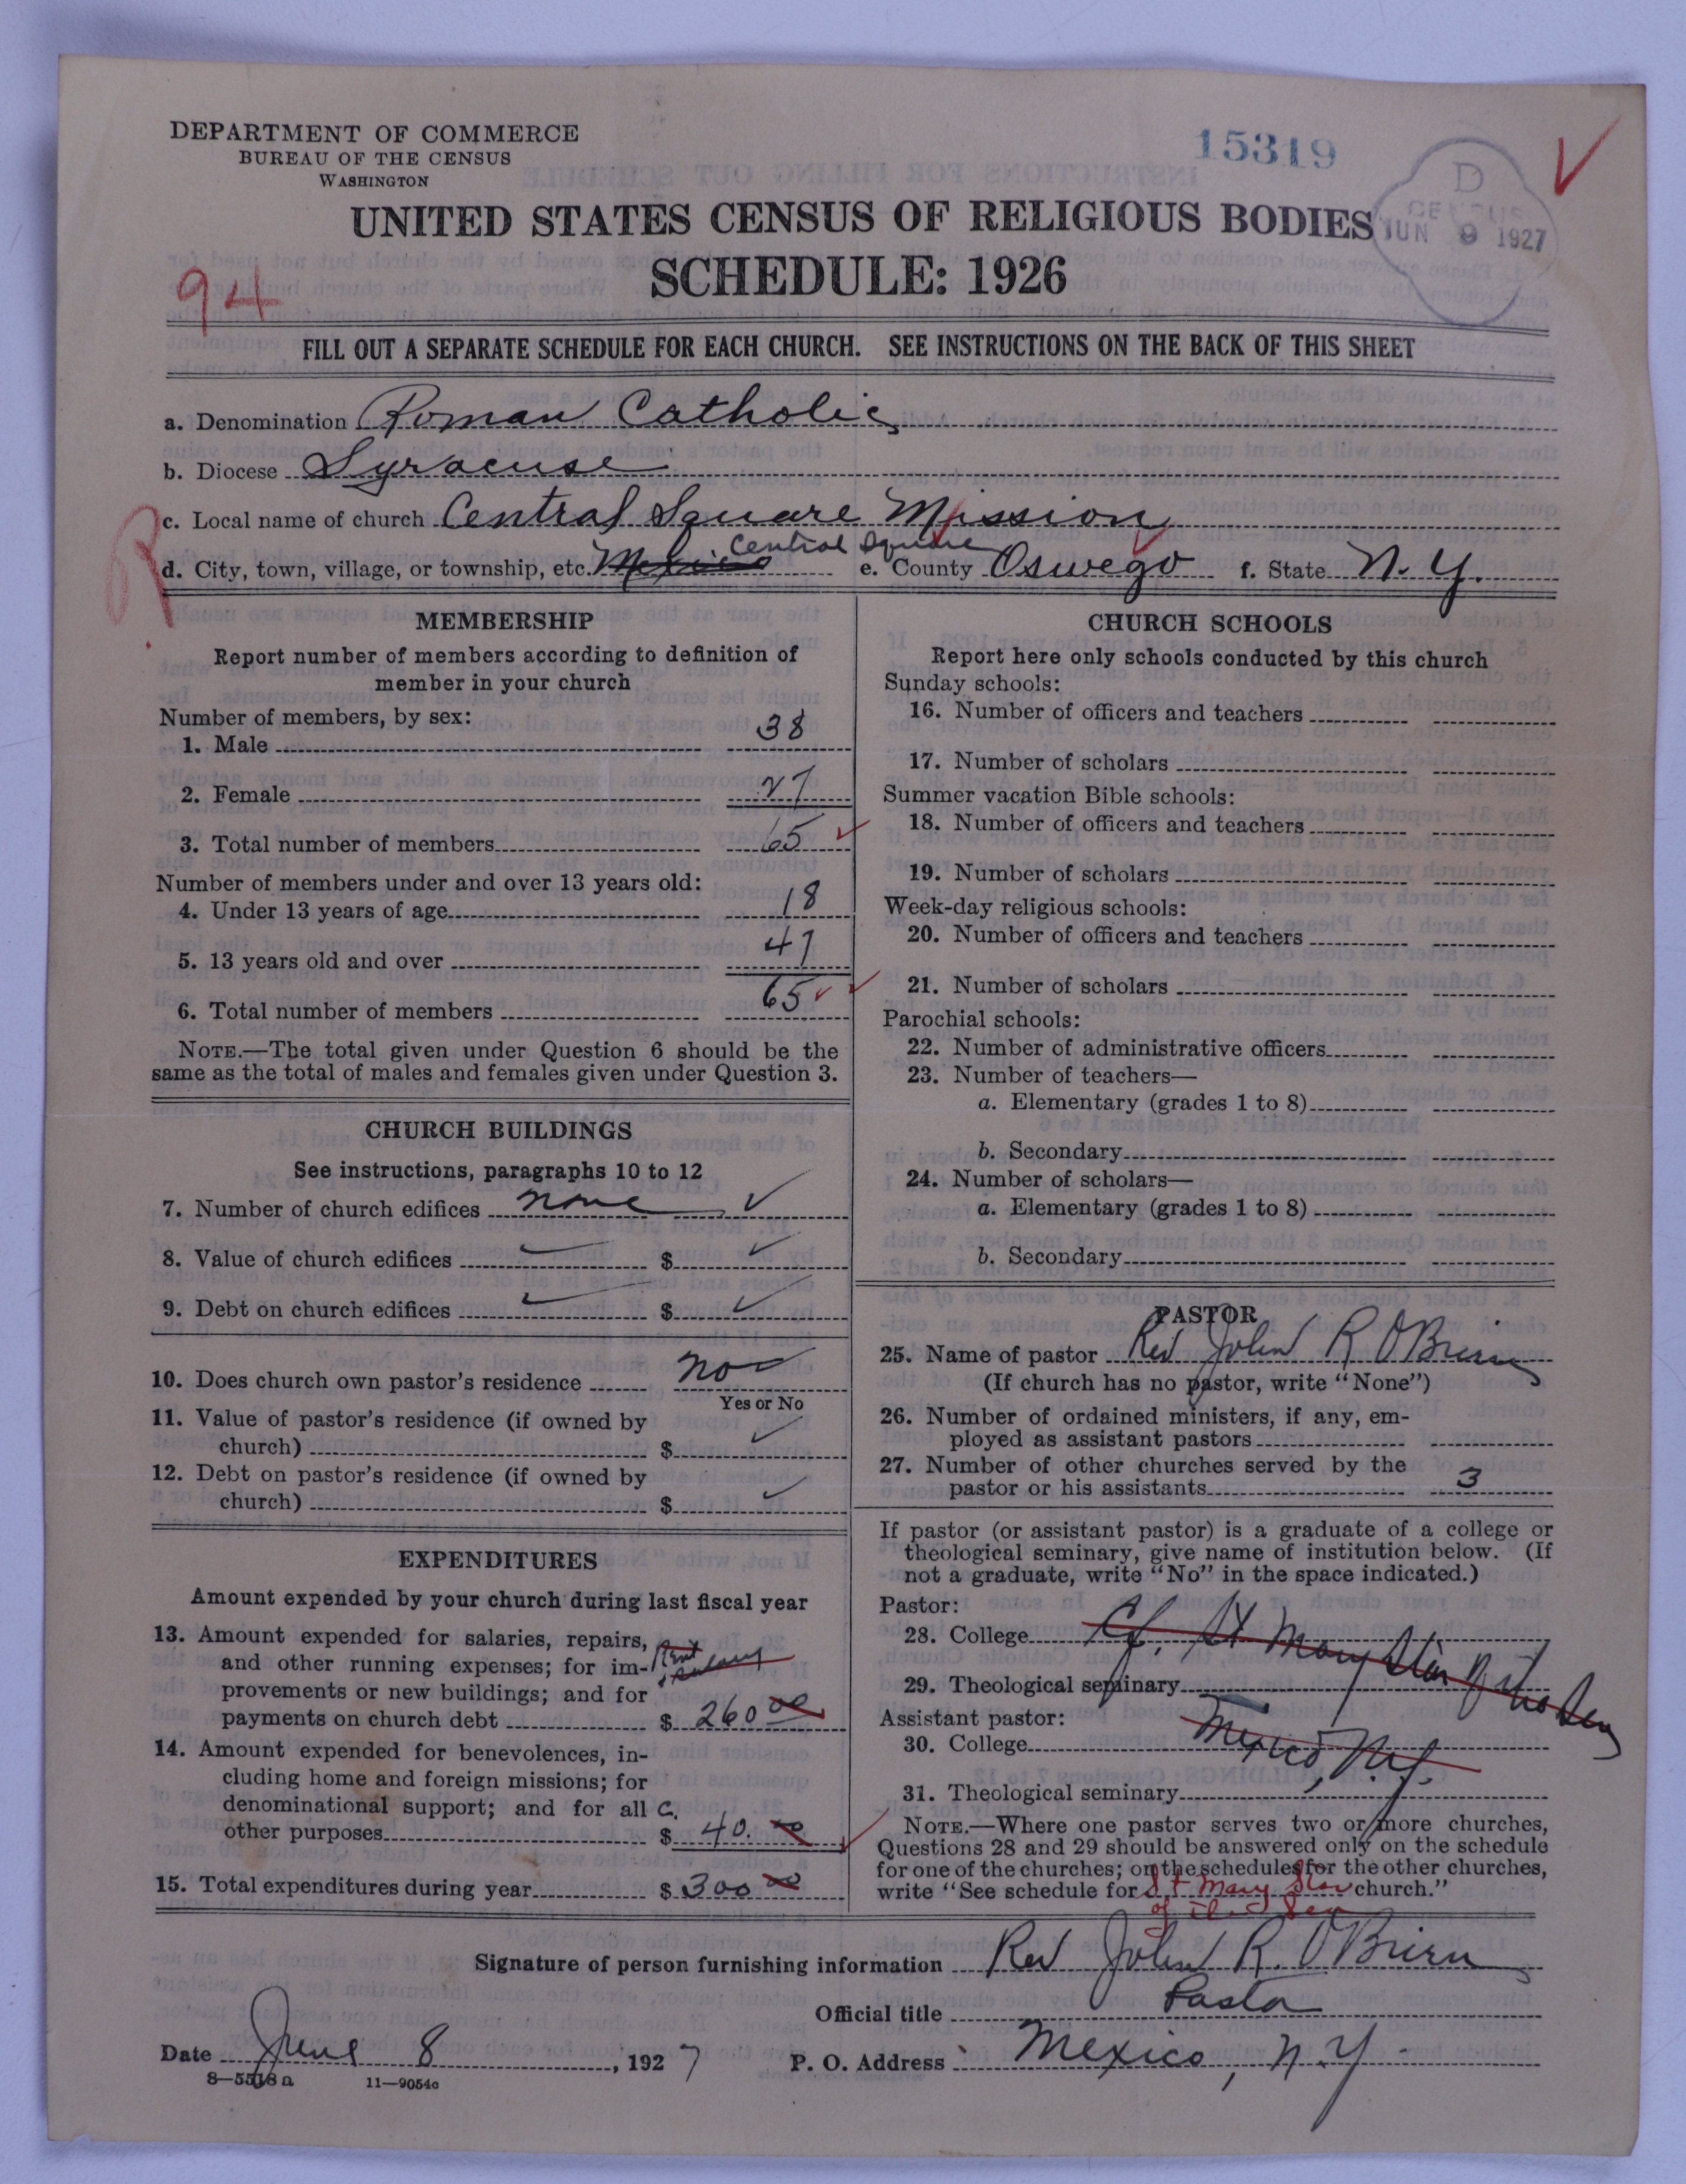 DEPARTMENT OF COMMERCE
BUREAU OF THE CENSUS
WASHINGTON
15319
D
CENSUS
JUN 9 1927
UNITED STATES CENSUS OF RELIGIOUS BODIES
SCHEDULE: 1926
94
FILL OUT A SEPARATE SCHEDULE FOR EACH CHURCH. SEE INSTRUCTIONS ON THE BACK OF THIS SHEET
a. Denomination Roman Catholic
b. Diocese Syracuse
R
c. Local name of church Central Square Mission
d. City, town, village, or township, etc. Mexico Central Square e. County Oswego f. State N. Y.
MEMBERSHIP
Report number of members according to definition of
member in your church
Number of members, by sex:
1. Male 38
2. Female 27
3. Total number of members 65
Number of members under and over 13 years old:
4. Under 13 years of age 18
5. 13 years old and over 47
6. Total number of members 65
NOTE.—The total given under Question 6 should be the
same as the total of males and females given under Question 3.
CHURCH BUILDINGS
See instructions, paragraphs 10 to 12
7. Number of church edifices none
8. Value of church edifices $
9. Debt on church edifices $
10. Does church own pastor's residence no
Yes or No
11. Value of pastor's residence (if owned by
church) $
12. Debt on pastor's residence (if owned by
church) $
EXPENDITURES
Amount expended by your church during last fiscal year
13. Amount expended for salaries, repairs,
and other running expenses; for im- Rent
salary
provements or new buildings; and for
payments on church debt $ 260 00
14. Amount expended for benevolences, in-
cluding home and foreign missions; for
denominational support; and for all C.
other purposes $ 40. 00
15. Total expenditures during year $ 300 00
CHURCH SCHOOLS
Report here only schools conducted by this church
Sunday schools:
16. Number of officers and teachers
17. Number of scholars
Summer vacation Bible schools:
18. Number of officers and teachers
19. Number of scholars
Week-day religious schools:
20. Number of officers and teachers
21. Number of scholars
Parochial schools:
22. Number of administrative officers
23. Number of teachers—
a. Elementary (grades 1 to 8)
b. Secondary
24. Number of scholars—
a. Elementary (grades 1 to 8)
b. Secondary
PASTOR
25. Name of pastor Rev John R O'Brien
(If church has no pastor, write "None")
26. Number of ordained ministers, if any, em-
ployed as assistant pastors
27. Number of other churches served by the
pastor or his assistants 3
If pastor (or assistant pastor) is a graduate of a college or
theological seminary, give name of institution below. (If
not a graduate, write "No" in the space indicated.)
Pastor:
28. College Cf. St Mary Star of the Sea
29. Theological seminary
Assistant pastor:
30. College Mexico, N.Y.
31. Theological seminary
NOTE.—Where one pastor serves two or more churches,
Questions 28 and 29 should be answered only on the schedule
for one of the churches; on the schedules for the other churches,
write "See schedule for St Mary Star church."
of the Sea
Signature of person furnishing information Rev John R. O'Brien
Official title Pastor
Date June 8, 1927 P. O. Address Mexico, N.Y.
8—5518a 11—9054c